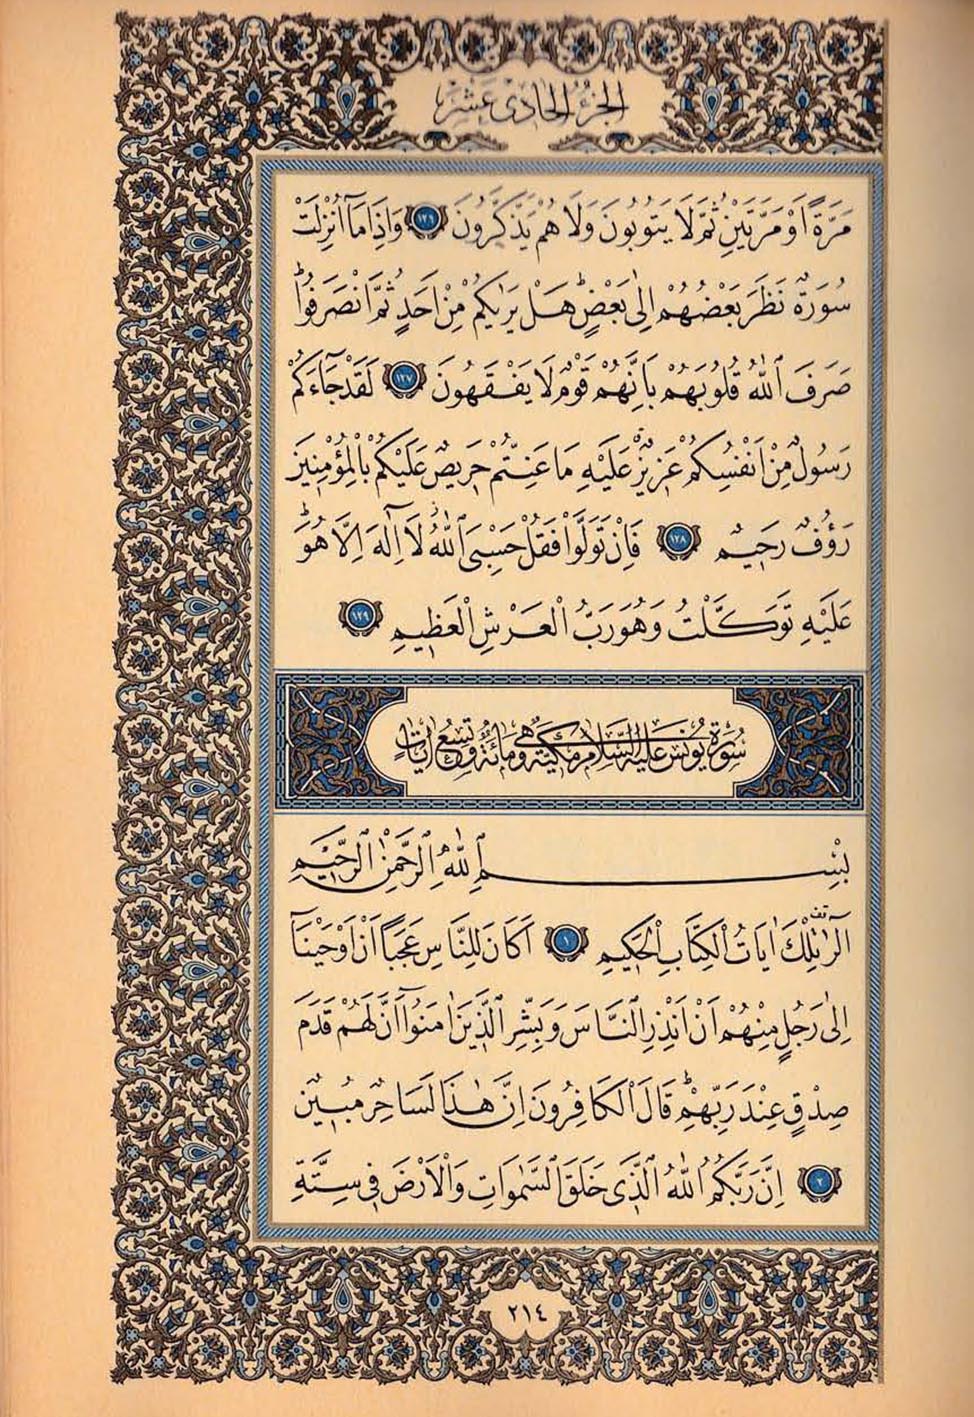 الجزء الحادى عشر
مَرَّةً اَوْ مَرَّتَيْنِ ثُمَّ لَا يَتُوبُونَ وَلَا هُمْ يَذَّكَّرُونَ ﴿١٢٦﴾ وَاِذَا مَٓا اُنْزِلَتْ
سُورَةٌ نَظَرَ بَعْضُهُمْ اِلٰى بَعْضٍۜ هَلْ يَرٰيكُمْ مِنْ اَحَدٍ ثُمَّ انْصَرَفُواۜ
صَرَفَ اللّٰهُ قُلُوبَهُمْ بِاَنَّهُمْ قَوْمٌ لَا يَفْقَهُونَ ﴿١٢٧﴾ لَقَدْ جَٓاءَكُمْ
رَسُولٌ مِنْ اَنْفُسِكُمْ عَزِيزٌ عَلَيْهِ مَا عَنِتُّمْ حَرِيصٌ عَلَيْكُمْ بِالْمُؤْمِنِينَ
رَؤُفٌ رَحِيمٌ ﴿١٢٨﴾ فَاِنْ تَوَلَّوْا فَقُلْ حَسْبِىَ اللّٰهُۘ لَٓا اِلٰهَ اِلَّا هُوَۜ
عَلَيْهِ تَوَكَّلْتُ وَهُوَ رَبُّ الْعَرْشِ الْعَظِيمِ ﴿١٢٩﴾
سُورَةُ يُونُسَ عَلَيْهِ السَّلَامُ مَكِّيَّةٌ وَهِىَ مِائَةٌ وَتِسْعُ اٰيَاتٍ
بِسْمِ اللّٰهِ الرَّحْمٰنِ الرَّحِيمِ
الٓرٰ۠ تِلْكَ اٰيَاتُ الْكِتَابِ الْحَكِيمِ ﴿١﴾ اَكَانَ لِلنَّاسِ عَجَبًا اَنْ اَوْحَيْنَٓا
اِلٰى رَجُلٍ مِنْهُمْ اَنْ اَنْذِرِ النَّاسَ وَبَشِّرِ الَّذِينَ اٰمَنُٓوا اَنَّ لَهُمْ قَدَمَ
صِدْقٍ عِنْدَ رَبِّهِمْۜ قَالَ الْكَافِرُونَ اِنَّ هٰذَا لَسَاحِرٌ مُبِينٌ
﴿٢﴾ اِنَّ رَبَّكُمُ اللّٰهُ الَّذِى خَلَقَ السَّمٰوَاتِ وَالْاَرْضَ فِى سِتَّةِ
٢١٤